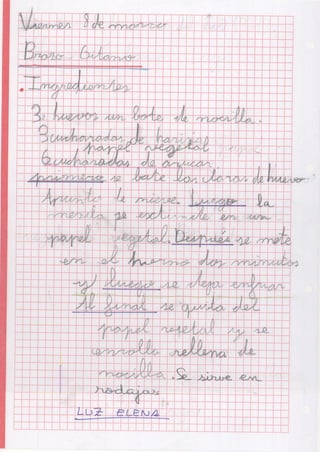 Viernes 8 de marzo
Brazo Gitano
. Ingredientes
3 huevos un bote de nocilla.
3 cucharadas de harina
papel vegetal
6 cucharadas de azucar
primero se bate las claras de huevo
Apunto de nieve. Luego la
mezcla se extiende en un
papel vegetal. Después se mete
en el horno dos minutos
y luego se deja enfriar
Al final se quita del
papel vegetal y se
enrolla rellena de
nocilla. Se sirve en
rodajas
LUZ ELENA